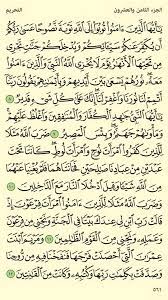 الجزء الثامن والعشرون
التحريم
يَـٰٓأَيُّهَا ٱلَّذِينَ ءَامَنُوا۟ تُوبُوٓا۟ إِلَى ٱللَّهِ تَوْبَةً نَّصُوحًا عَسَىٰ رَبُّكُمْ
أَن يُكَفِّرَ عَنكُمْ سَيِّـَٔاتِكُمْ وَيُدْخِلَكُمْ جَنَّـٰتٍ تَجْرِى
مِن تَحْتِهَا ٱلْأَنْهَـٰرُ يَوْمَ لَا يُخْزِى ٱللَّهُ ٱلنَّبِىَّ وَٱلَّذِينَ ءَامَنُوا۟
مَعَهُۥ نُورُهُمْ يَسْعَىٰ بَيْنَ أَيْدِيهِمْ وَبِأَيْمَـٰنِهِمْ يَقُولُونَ رَبَّنَآ
أَتْمِمْ لَنَا نُورَنَا وَٱغْفِرْ لَنَآ إِنَّكَ عَلَىٰ كُلِّ شَىْءٍ قَدِيرٌ ٨
يَـٰٓأَيُّهَا ٱلنَّبِىُّ جَـٰهِدِ ٱلْكُفَّارَ وَٱلْمُنَـٰفِقِينَ وَٱغْلُظْ عَلَيْهِمْ
وَمَأْوَىٰهُمْ جَهَنَّمُ وَبِئْسَ ٱلْمَصِيرُ ٩ ضَرَبَ ٱللَّهُ مَثَلًا
لِّلَّذِينَ كَفَرُوا۟ ٱمْرَأَتَ نُوحٍ وَٱمْرَأَتَ لُوطٍ كَانَتَا تَحْتَ
عَبْدَيْنِ مِنْ عِبَادِنَا صَـٰلِحَيْنِ فَخَانَتَاهُمَا فَلَمْ يُغْنِيَا عَنْهُمَا
مِنَ ٱللَّهِ شَيْـًٔا وَقِيلَ ٱدْخُلَا ٱلنَّارَ مَعَ ٱلدَّٰخِلِينَ ١٠
وَضَرَبَ ٱللَّهُ مَثَلًا لِّلَّذِينَ ءَامَنُوا۟ ٱمْرَأَتَ فِرْعَوْنَ إِذْ
قَالَتْ رَبِّ ٱبْنِ لِى عِندَكَ بَيْتًا فِى ٱلْجَنَّةِ وَنَجِّنِى مِن فِرْعَوْنَ
وَعَمَلِهِۦ وَنَجِّنِى مِنَ ٱلْقَوْمِ ٱلظَّـٰلِمِينَ ١١ وَمَرْيَمَ ٱبْنَتَ
عِمْرَٰنَ ٱلَّتِىٓ أَحْصَنَتْ فَرْجَهَا فَنَفَخْنَا فِيهِ مِن رُّوحِنَا
وَصَدَّقَتْ بِكَلِمَـٰتِ رَبِّهَا وَكُتُبِهِۦ وَكَانَتْ مِنَ ٱلْقَـٰنِتِينَ ١٢
٥٦١